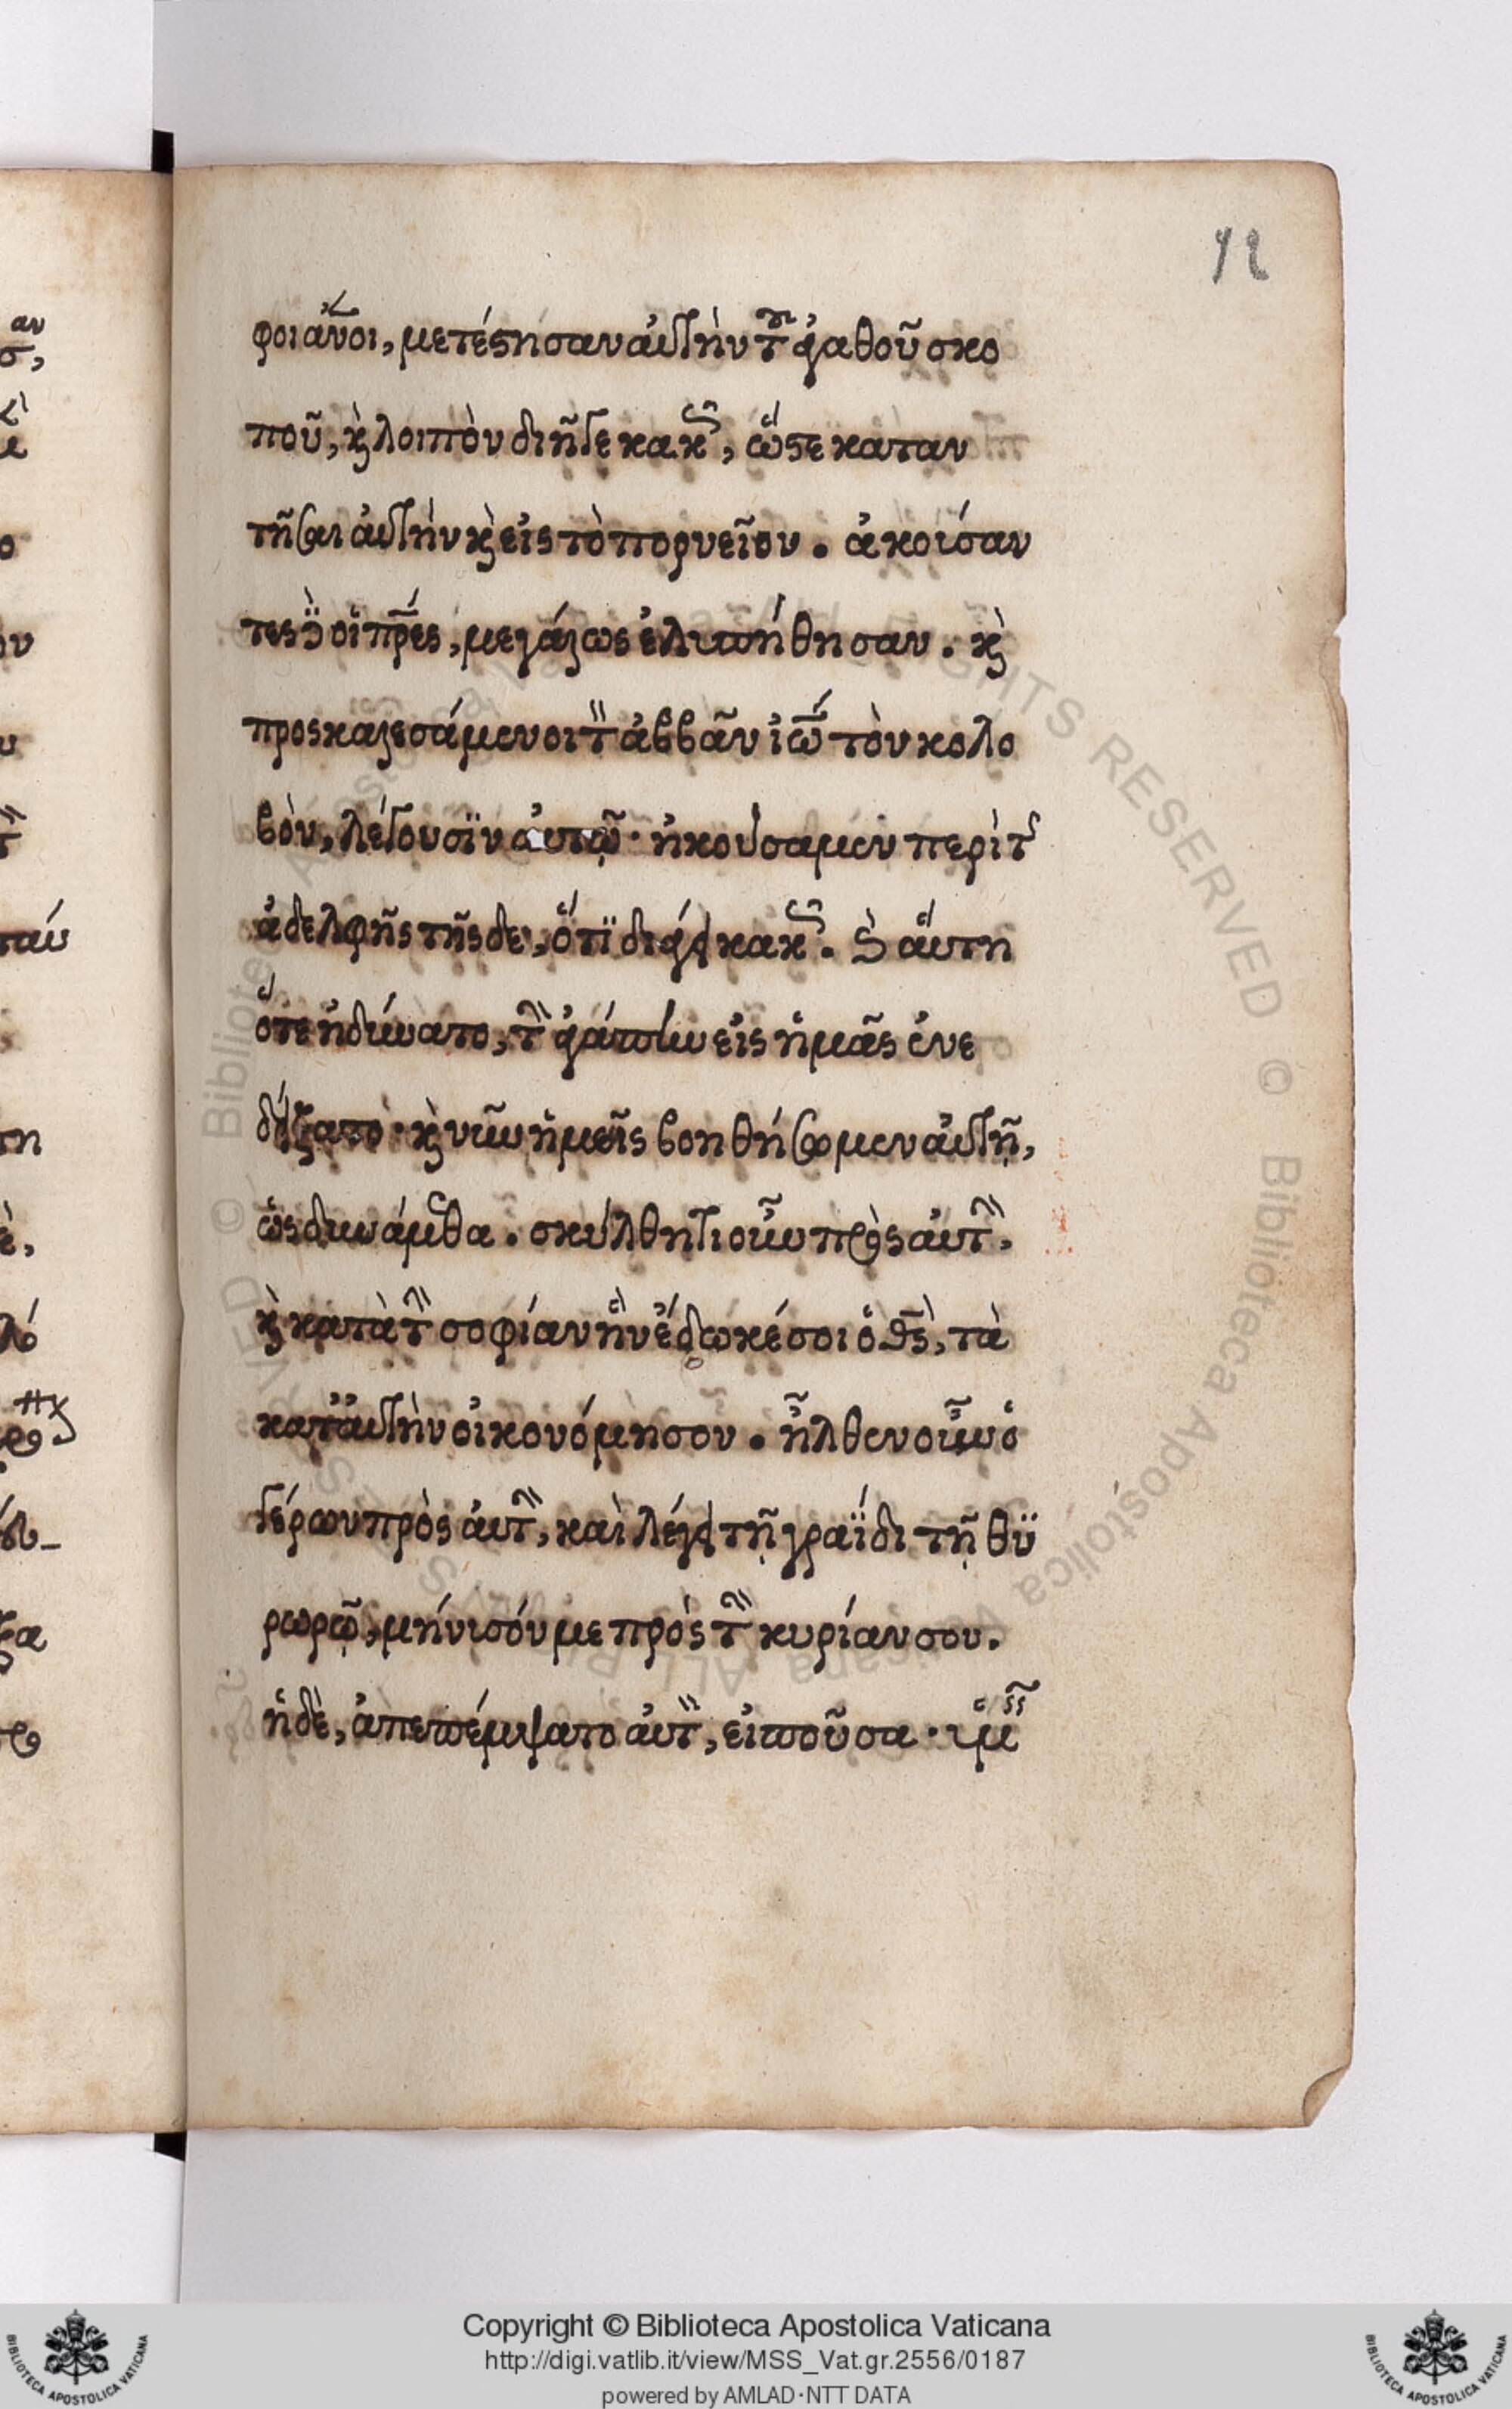 12
φοι ἄνοι, μετέστησαν αὐτὴν τοῦ ἀγαθοῦ σκο
ποῦ, κὲ λοιπὸν διῆγε κακῶς, ὥστε καταν
τῆσαι αὐτὴν κὲ εἰς τὸ πορνεῖον. ἀκούσαν
τες δὲ οἱ πρ̅ες, μεγάλως ἐλυπήθησαν. κὲ
προσκαλεσάμενοι τὸν ἀββᾶν ἰω̅ τὸν κολο
βὸν, λέγουσϊν αὐτῶ· ἠκούσαμεν περὶ τῆς
ἀδελφῆς τῆσδε, ὅτϊ διάγει κακῶς. κὲ αὕτη
ὅτε ἠδύνατο, τὴν ἀγάπην εἰς ἡμᾶς ἐνε
δείξατο· κὲ νῦν ἡμεῖς βοηθήσωμεν αὐτῆ,
ὡς δυνάμεθα. σκύλθητι οὖν πρὸς αὐτὴν,
κὲ κατὰ τὴν σοφίαν ἣν ἔδωκέ σοι ὁ θς̅, τὰ
κατ' αὐτὴν οἰκονόμησον. ἦλθεν οὖν ὁ
γέρων πρὸς αὐτὴν, καὶ λέγει τῆ γραΐδι τῆ θϋ
ρωρῶ, μήνισόν με πρὸς τὴν κυρίαν σου.
ἡ δὲ, ἀπεπέμψατο αὐτὸν, εἰποῦσα· ὑμεῖς
Copyright © Biblioteca Apostolica Vaticana
http://digi.vatlib.it/view/MSS_Vat.gr.2556/0187
powered by AMLAD·NTT DATA